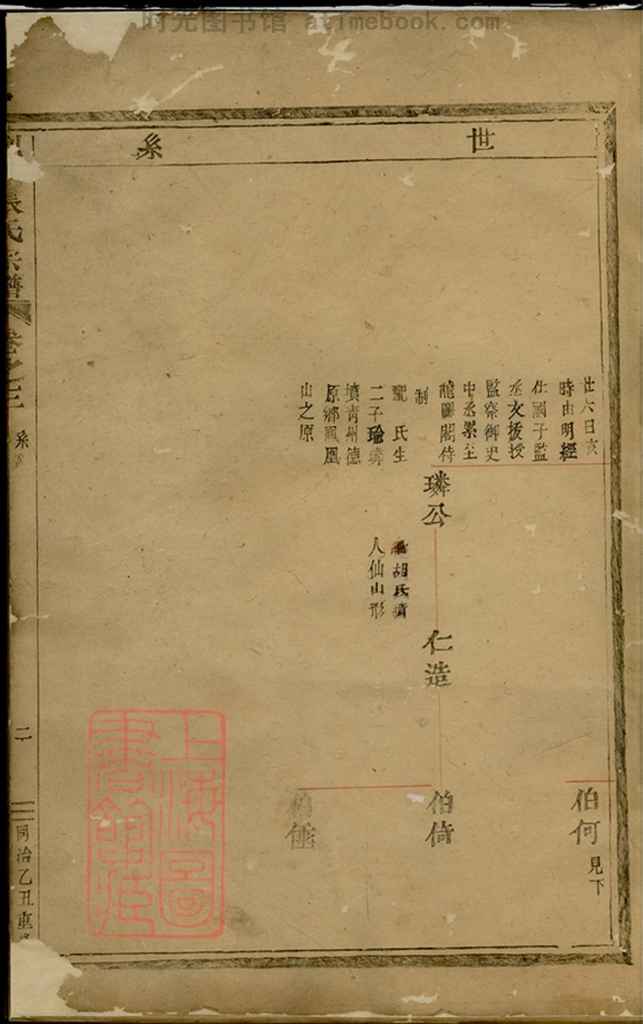 时光图书馆 - atimebook.com
世系
廿六日亥
時由明經
仕國子監
丞文援授
監察御史
中丞累仕
龍圖閣侍
制
氏生
二子瑜璘
墳青州德
原鄉鳳凰
山之原
璘公
胡氏墳
人仙山形
仁造
伯何
見下
伯倚
張氏宗譜
卷之二
系
二
同治乙丑重
上海圖書館藏